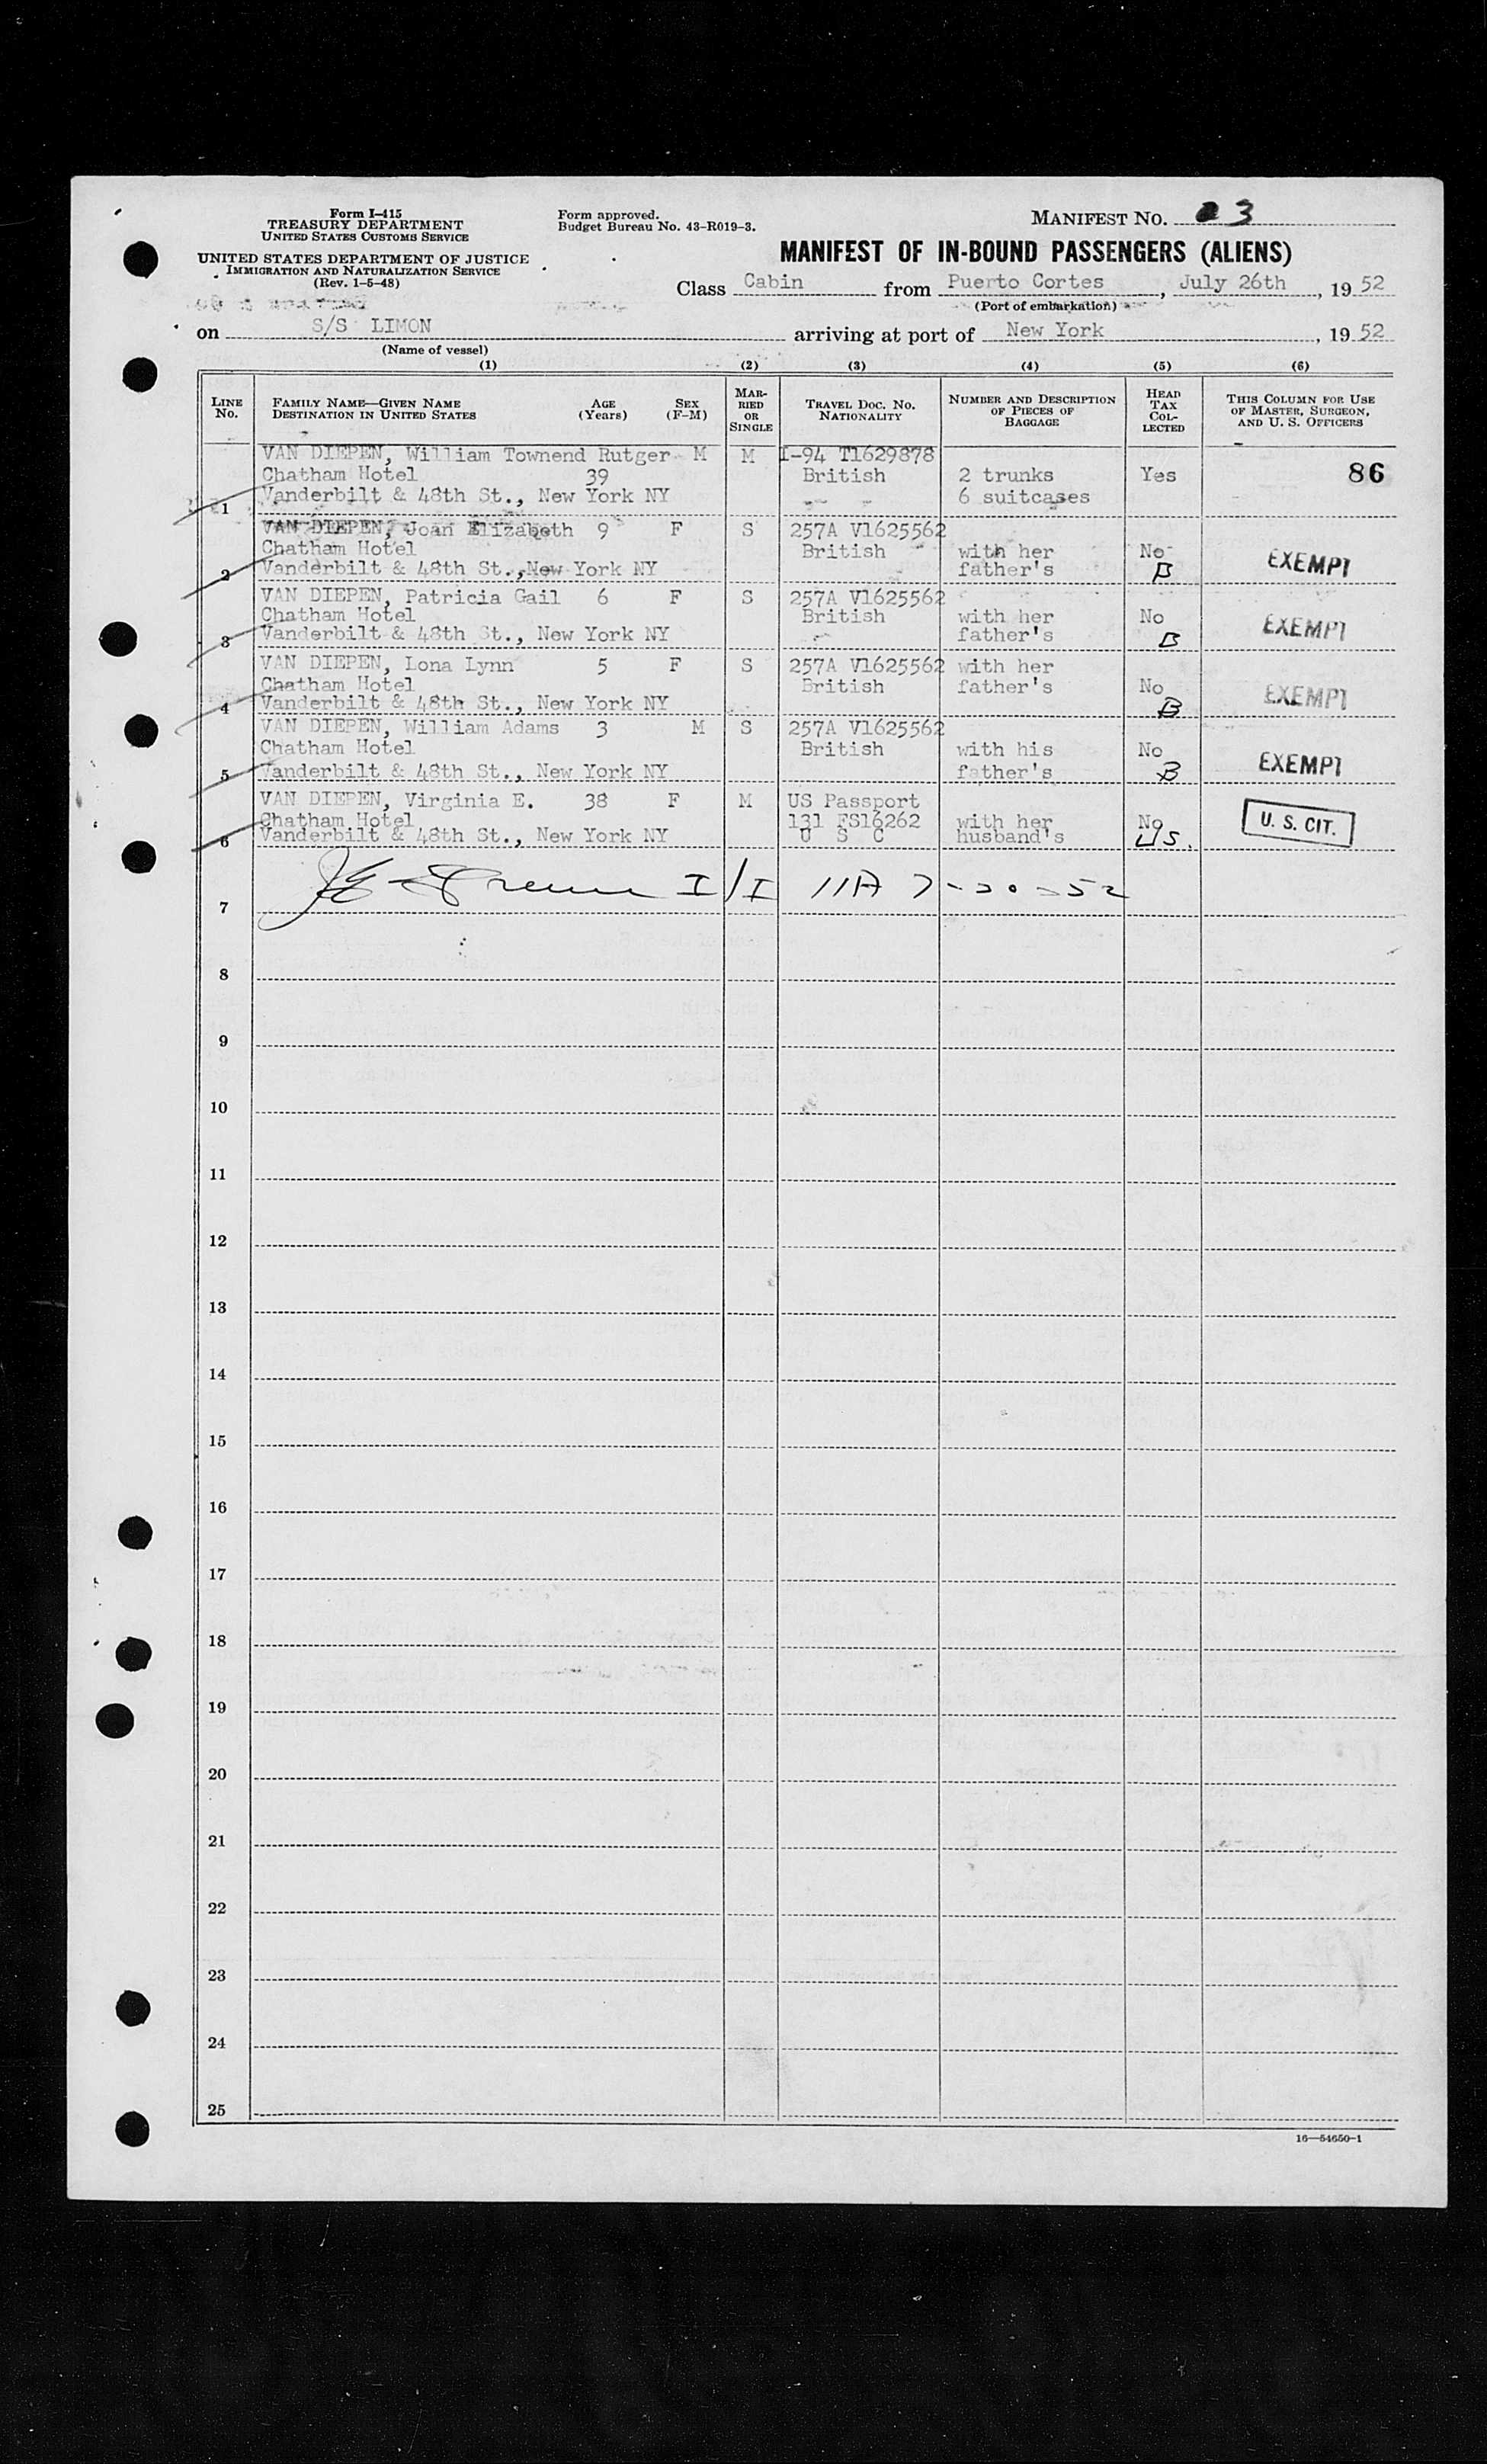 Form I-415
TREASURY DEPARTMENT
UNITED STATES CUSTOMS SERVICE
UNITED STATES DEPARTMENT OF JUSTICE
IMMIGRATION AND NATURALIZATION SERVICE
(Rev. 1-5-48)
Form approved.
Budget Bureau No. 43-R019-3.
MANIFEST NO. 3
MANIFEST OF IN-BOUND PASSENGERS (ALIENS)
Class Cabin from Puerto Cortes, July 26th, 1952
(Port of embarkation)
on S/S LIMON arriving at port of New York, 1952
(Name of vessel)
(1) (2) (3) (4) (5) (6)
LINE No. FAMILY NAME—GIVEN NAME DESTINATION IN UNITED STATES AGE (Years) SEX (F-M) MARRIED OR SINGLE TRAVEL DOC. NO. NATIONALITY NUMBER AND DESCRIPTION OF PIECES OF BAGGAGE HEAD TAX COLLECTED THIS COLUMN FOR USE OF MASTER, SURGEON, AND U. S. OFFICERS
VAN DIEPEN, William Townend Rutger M M I-94 T1629878
Chatham Hotel 39 British 2 trunks Yes 86
1 Vanderbilt & 48th St., New York NY 6 suitcases
VAN DIEPEN, Joan Elizabeth 9 F S 257A V1625562
Chatham Hotel British with her No EXEMPT
2 Vanderbilt & 48th St., New York NY father's B
VAN DIEPEN, Patricia Gail 6 F S 257A V1625562
Chatham Hotel British with her No EXEMPT
3 Vanderbilt & 48th St., New York NY father's B
VAN DIEPEN, Lona Lynn 5 F S 257A V1625562 with her
Chatham Hotel British father's No EXEMPT
4 Vanderbilt & 48th St., New York NY B
VAN DIEPEN, William Adams 3 M S 257A V1625562
Chatham Hotel British with his No EXEMPT
5 Vanderbilt & 48th St., New York NY father's B
VAN DIEPEN, Virginia E. 38 F M US Passport
Chatham Hotel 131 FS16262 with her No U. S. CIT.
6 Vanderbilt & 48th St., New York NY U S C husband's US.
7 I/I 11A 7-30-52
8
9
10
11
12
13
14
15
16
17
18
19
20
21
22
23
24
25
16—54650-1